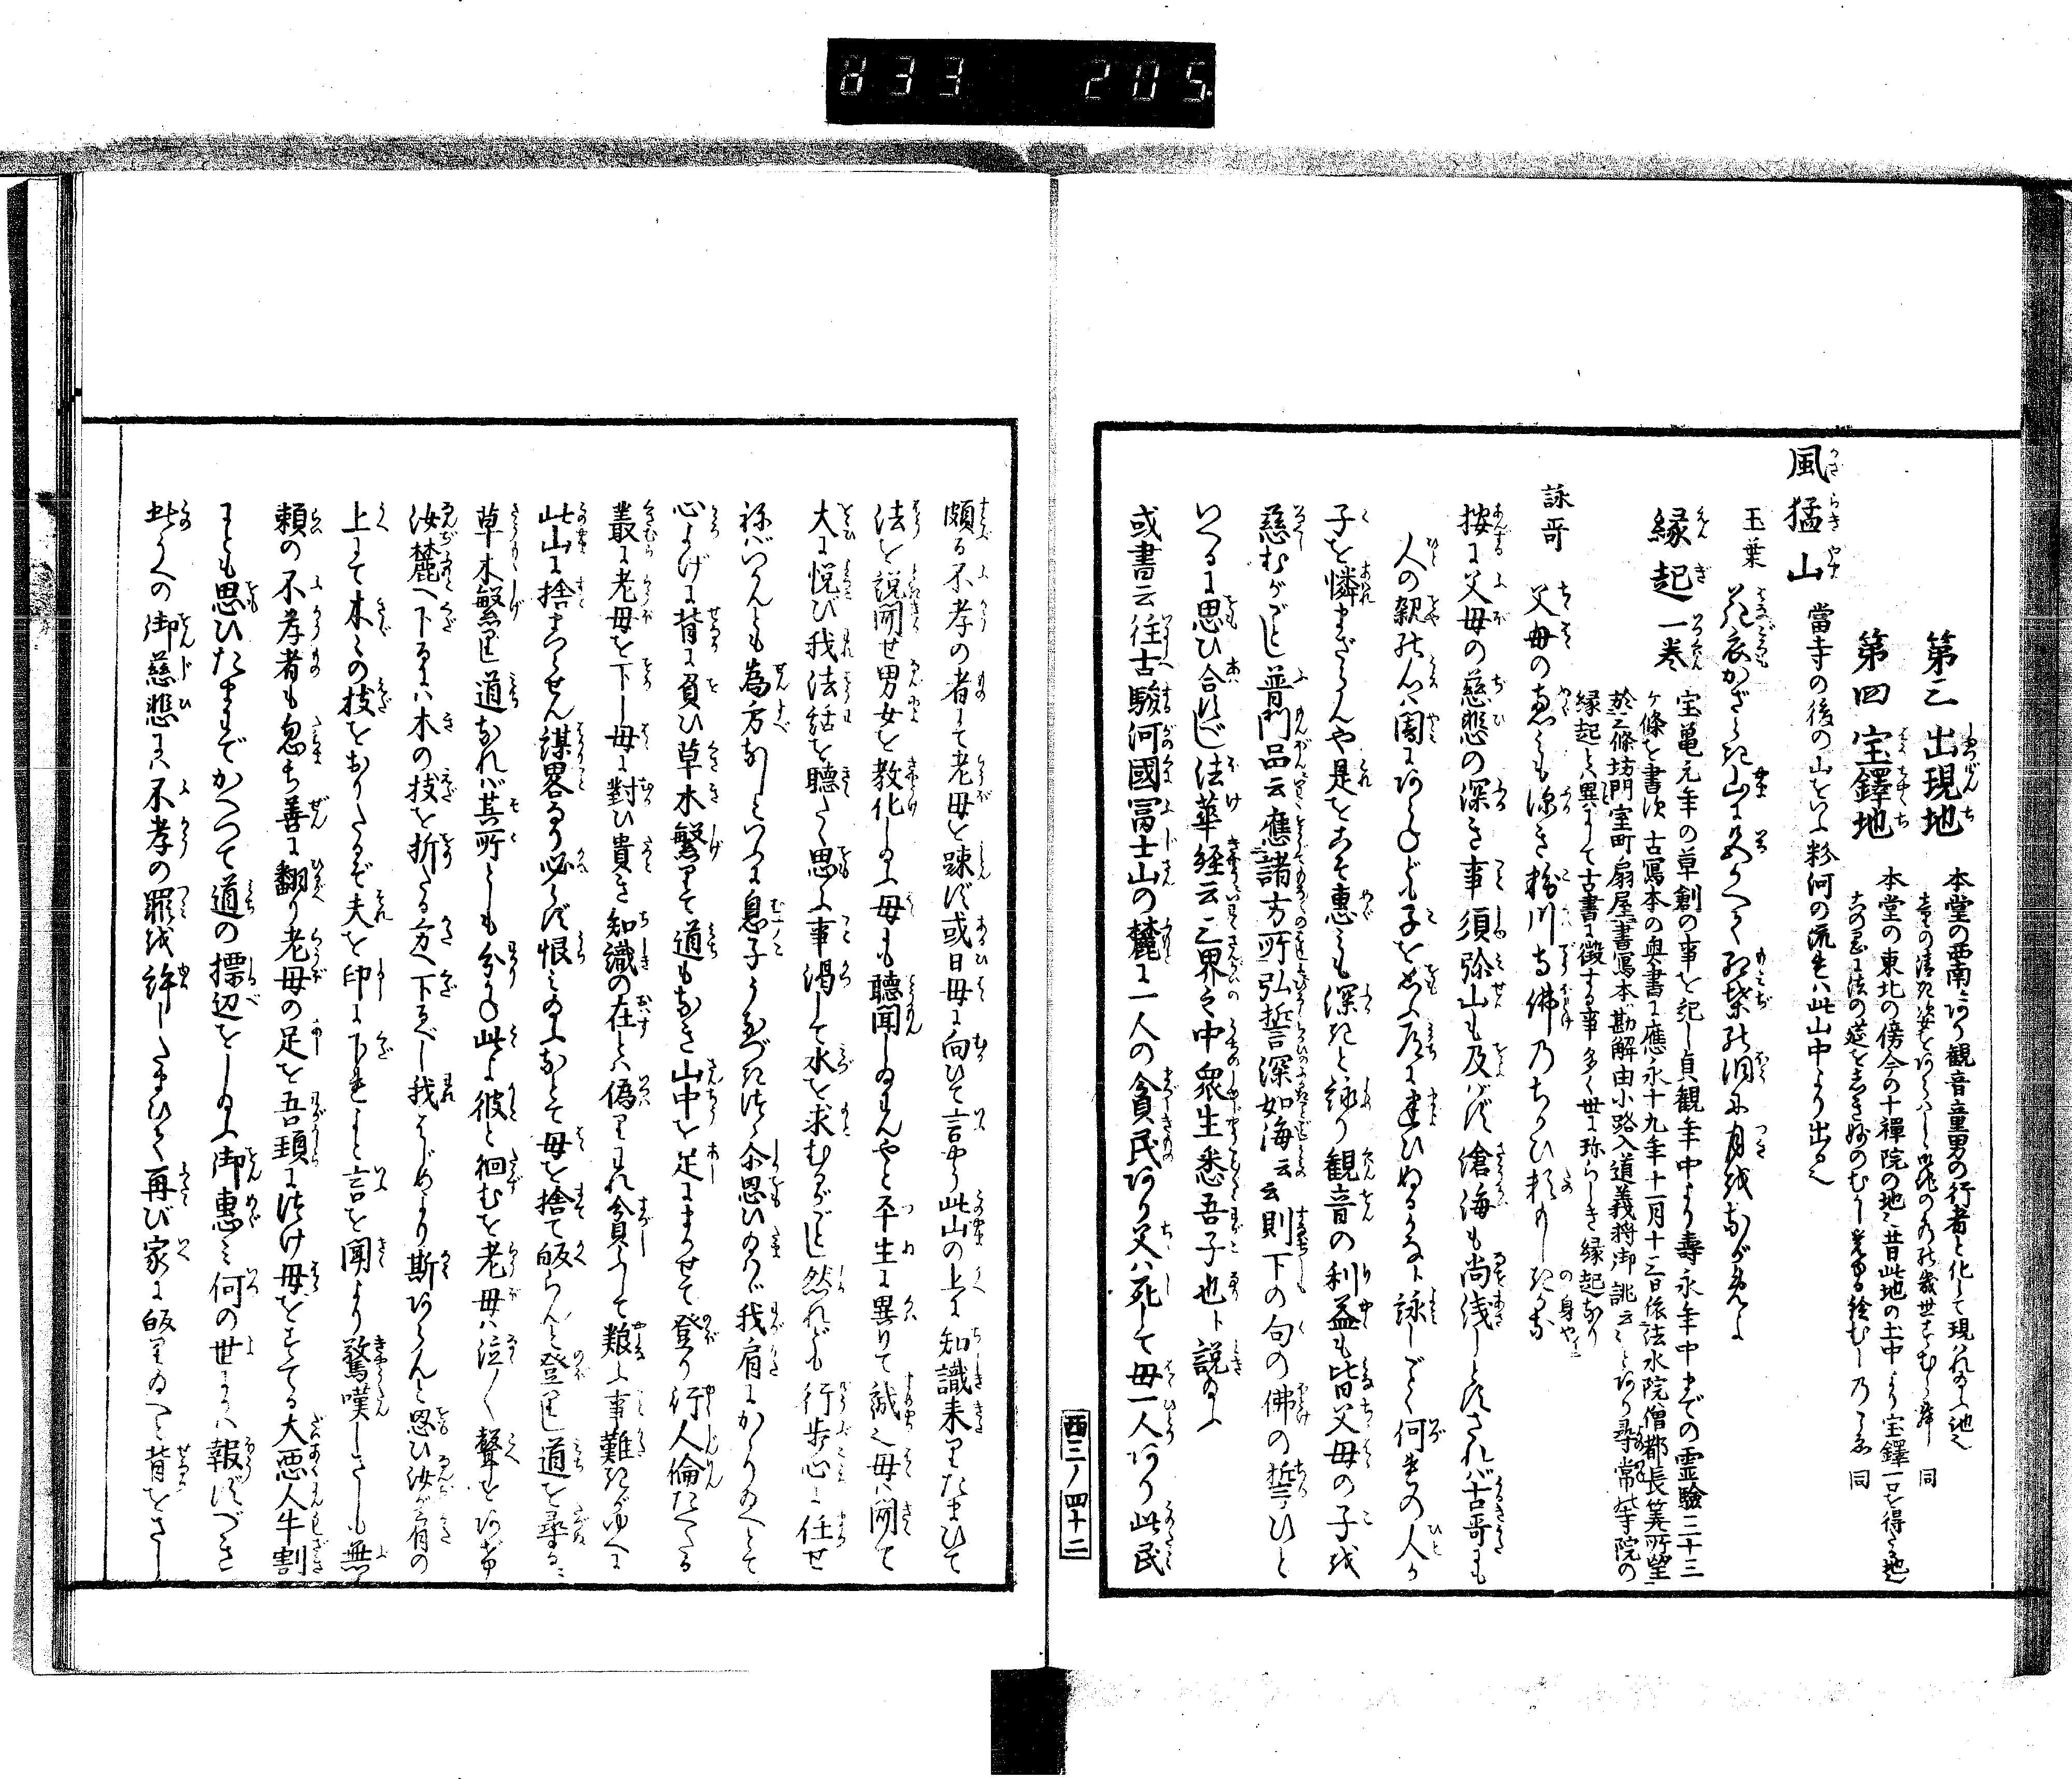 833 205
第三 出現地 本堂の西南にあり観音童男の行者と化して現れ給ふ地也
第四 宝鐸地 本堂の東北の傍今の十禅院の地也昔此地の土中より宝鐸一口を得たる地也
風猛山 當寺の後の山をいふ粉河の流れは此山中より出る也
玉葉
縁起一巻 宝亀元年の草創の事を記し貞観年中より寿永年中までの霊験三十三
ヶ條を書す古寫本の奥書に應永十九年十一月十三日依法水院僧都長筭所望
於三條坊門室町扇屋書寫本勘解由小路入道義将御誂云々とあり尋常
縁起とは異にて古書に徴する事多く世に珍らしき縁起なり
詠哥 父母の恵も深き粉川寺佛のちかひ頼もしの身や
按に父母の慈悲の深き事須弥山も及ばず滄海も尚浅しとすされバ古哥も
人の親の心ハ闇にあらねども子を思ふ道に迷ひぬるかなト詠じて何れの人か
子を憐まざらんや是をこそ恵も深きと詠り観音の利益も皆父母の子を
慈むがごとし普門品云應諸方所弘誓深如海云云則下の句の佛の誓ひと
いへるに思ひ合すべし法華経云三界之中衆生悉吾子也ト説給ふ
或書云往古駿河國冨士山の麓に一人の貧民あり父ハ死して母一人あり此民
西三ノ四十二
頗る不孝の者にて老母を疎ず或日母に向ひて言やう此山の上に知識来りたまひて
法を説聞せ男女を教化し給ふ母も聴聞し給わんやと平生に異りて誠し母ハ聞て
大に悦び我法話を聴たく思ふ事渇して水を求むるがごとし然れども行歩心に任せ
ねばいかんとも為方なしといふに息子うなづき然思ひ給ハゞ我肩にかゝり給へとて
心よげに背に負ひ草木繁りて道もなき山中を足にまかせて登り行人倫たへたる
叢に老母を下し母に對ひ貴き知識の在とハ偽りわれ貧ふして粮ふ事難きがゆへに
此山に捨まゐらせん謀畧なり必らず恨み給ふなとて母を捨て皈らんと登りし道を尋るに
草木繁りし道なれバ其所とも分らね此よ彼と徊むを老母ハ泣々聲をあげ
汝麓へ下るにハ木の枝を折たる方へ下るべし我はじめより斯あらんと思ひ汝が背の
上にて木々の枝をおりたるぞ夫を印に下れよと言を聞より驚嘆しさしも無
頼の不孝者も忽ち善に翻り老母の足を吾頭につけ母をすてる大悪人牛割
にとも思ひたまはでかへつて道の標辺をしめし給ふ御恵み何の世にかハ報ずべき
此うへの御慈悲にハ不孝の罪を許したまひて再び家に皈り給へと背をさし